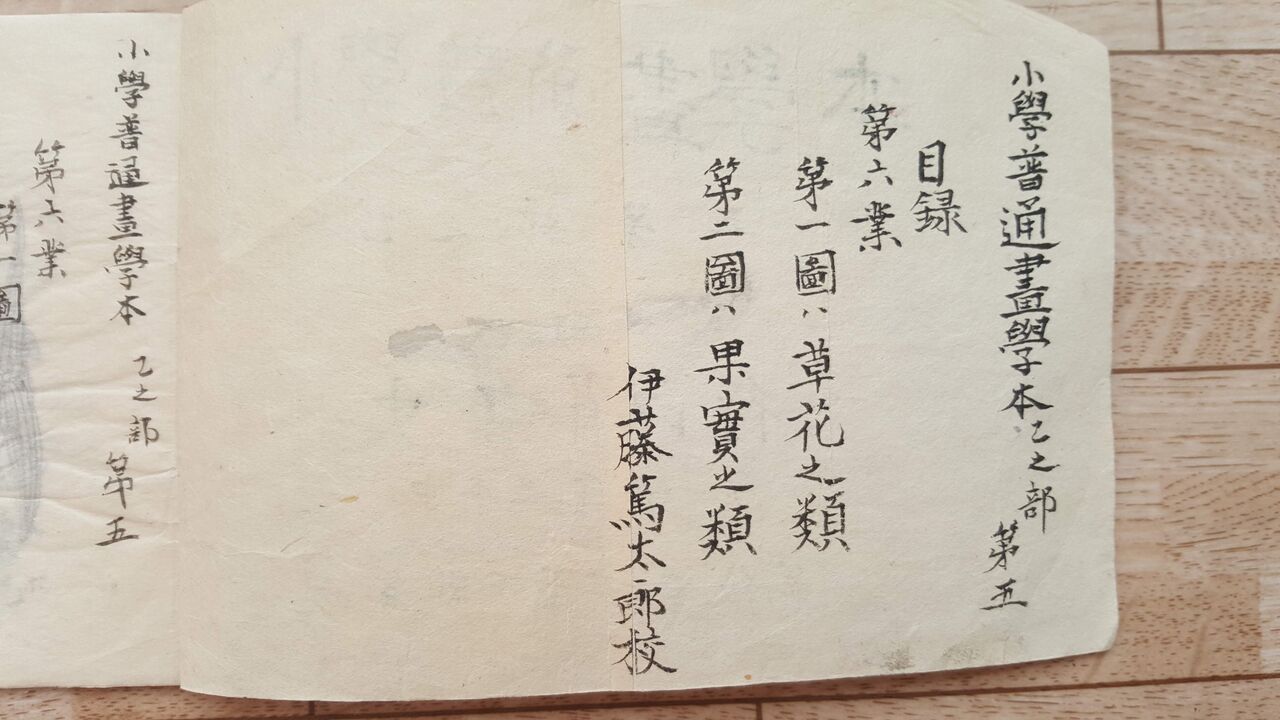 小學普通畫學本 乙之部 第五
目録
第六業
第一圖ハ草花之類
第二圖ハ果實之類
伊藤篤太郎校
小學普通畫學本 乙之部 第五
第六業
第一圖